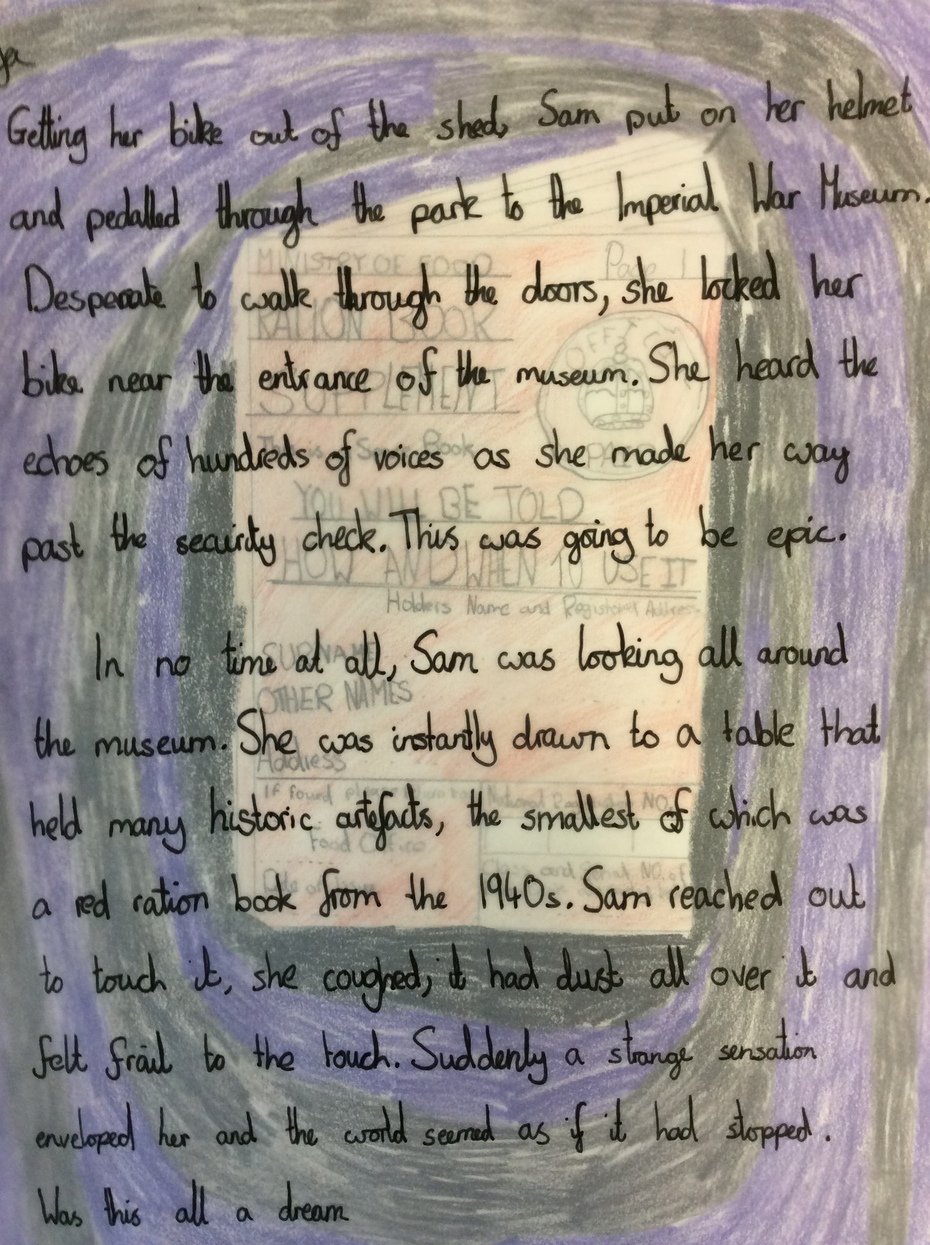 Getting her bike out of the shed, Sam put on her helmet
and pedalled through the park to the Imperial War Museum.
MINISTRY OF FOOD Page 1
Desperate to walk through the doors, she locked her
RATION BOOK
bike near the entrance of the museum. She heard the
SUPPLEMENT
echoes of hundreds of voices as she made her way
YOU WILL BE TOLD
past the security check. This was going to be epic.
HOW AND WHEN TO USE IT
Holders Name and Registered Address
In no time at all, Sam was looking all around
SURNAME
OTHER NAMES
the museum. She was instantly drawn to a table that
Address
If found
held many historic artefacts, the smallest of which was
Food Office
a red ration book from the 1940s. Sam reached out
to touch it, she coughed; it had dust all over it and
felt frail to the touch. Suddenly a strange sensation
enveloped her and the world seemed as if it had stopped.
Was this all a dream